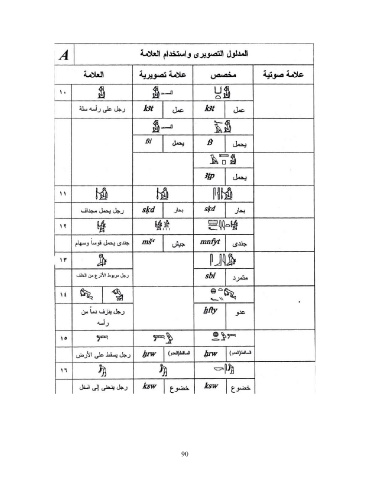 A المدلول التصويرى واستخدام العلامة
العلامة علامة تصويرية مخصص علامة صوتية
١٠
رجل على رأسه سلة k3t عمل k3t عمل
f3i يحمل f3 يحمل
3tp يحمل
١١
رجل يحمل مجداف sḳd بحار sḳd بحار
١٢
جندى يحمل قوساً وسهام mšʿ جيش mnfyt جندى
١٣
رجل مربوط الأذرع من الخلف sbi متمرد
١٤
رجل ينزف دماً من رأسه ḫfty عدو
١٥
رجل يسقط على الأرض ḫrw الساقط(العدو) ḫrw الساقط(العدو)
١٦
رجل ينحنى إلى اسفل ksw خضوع ksw خضوع
90